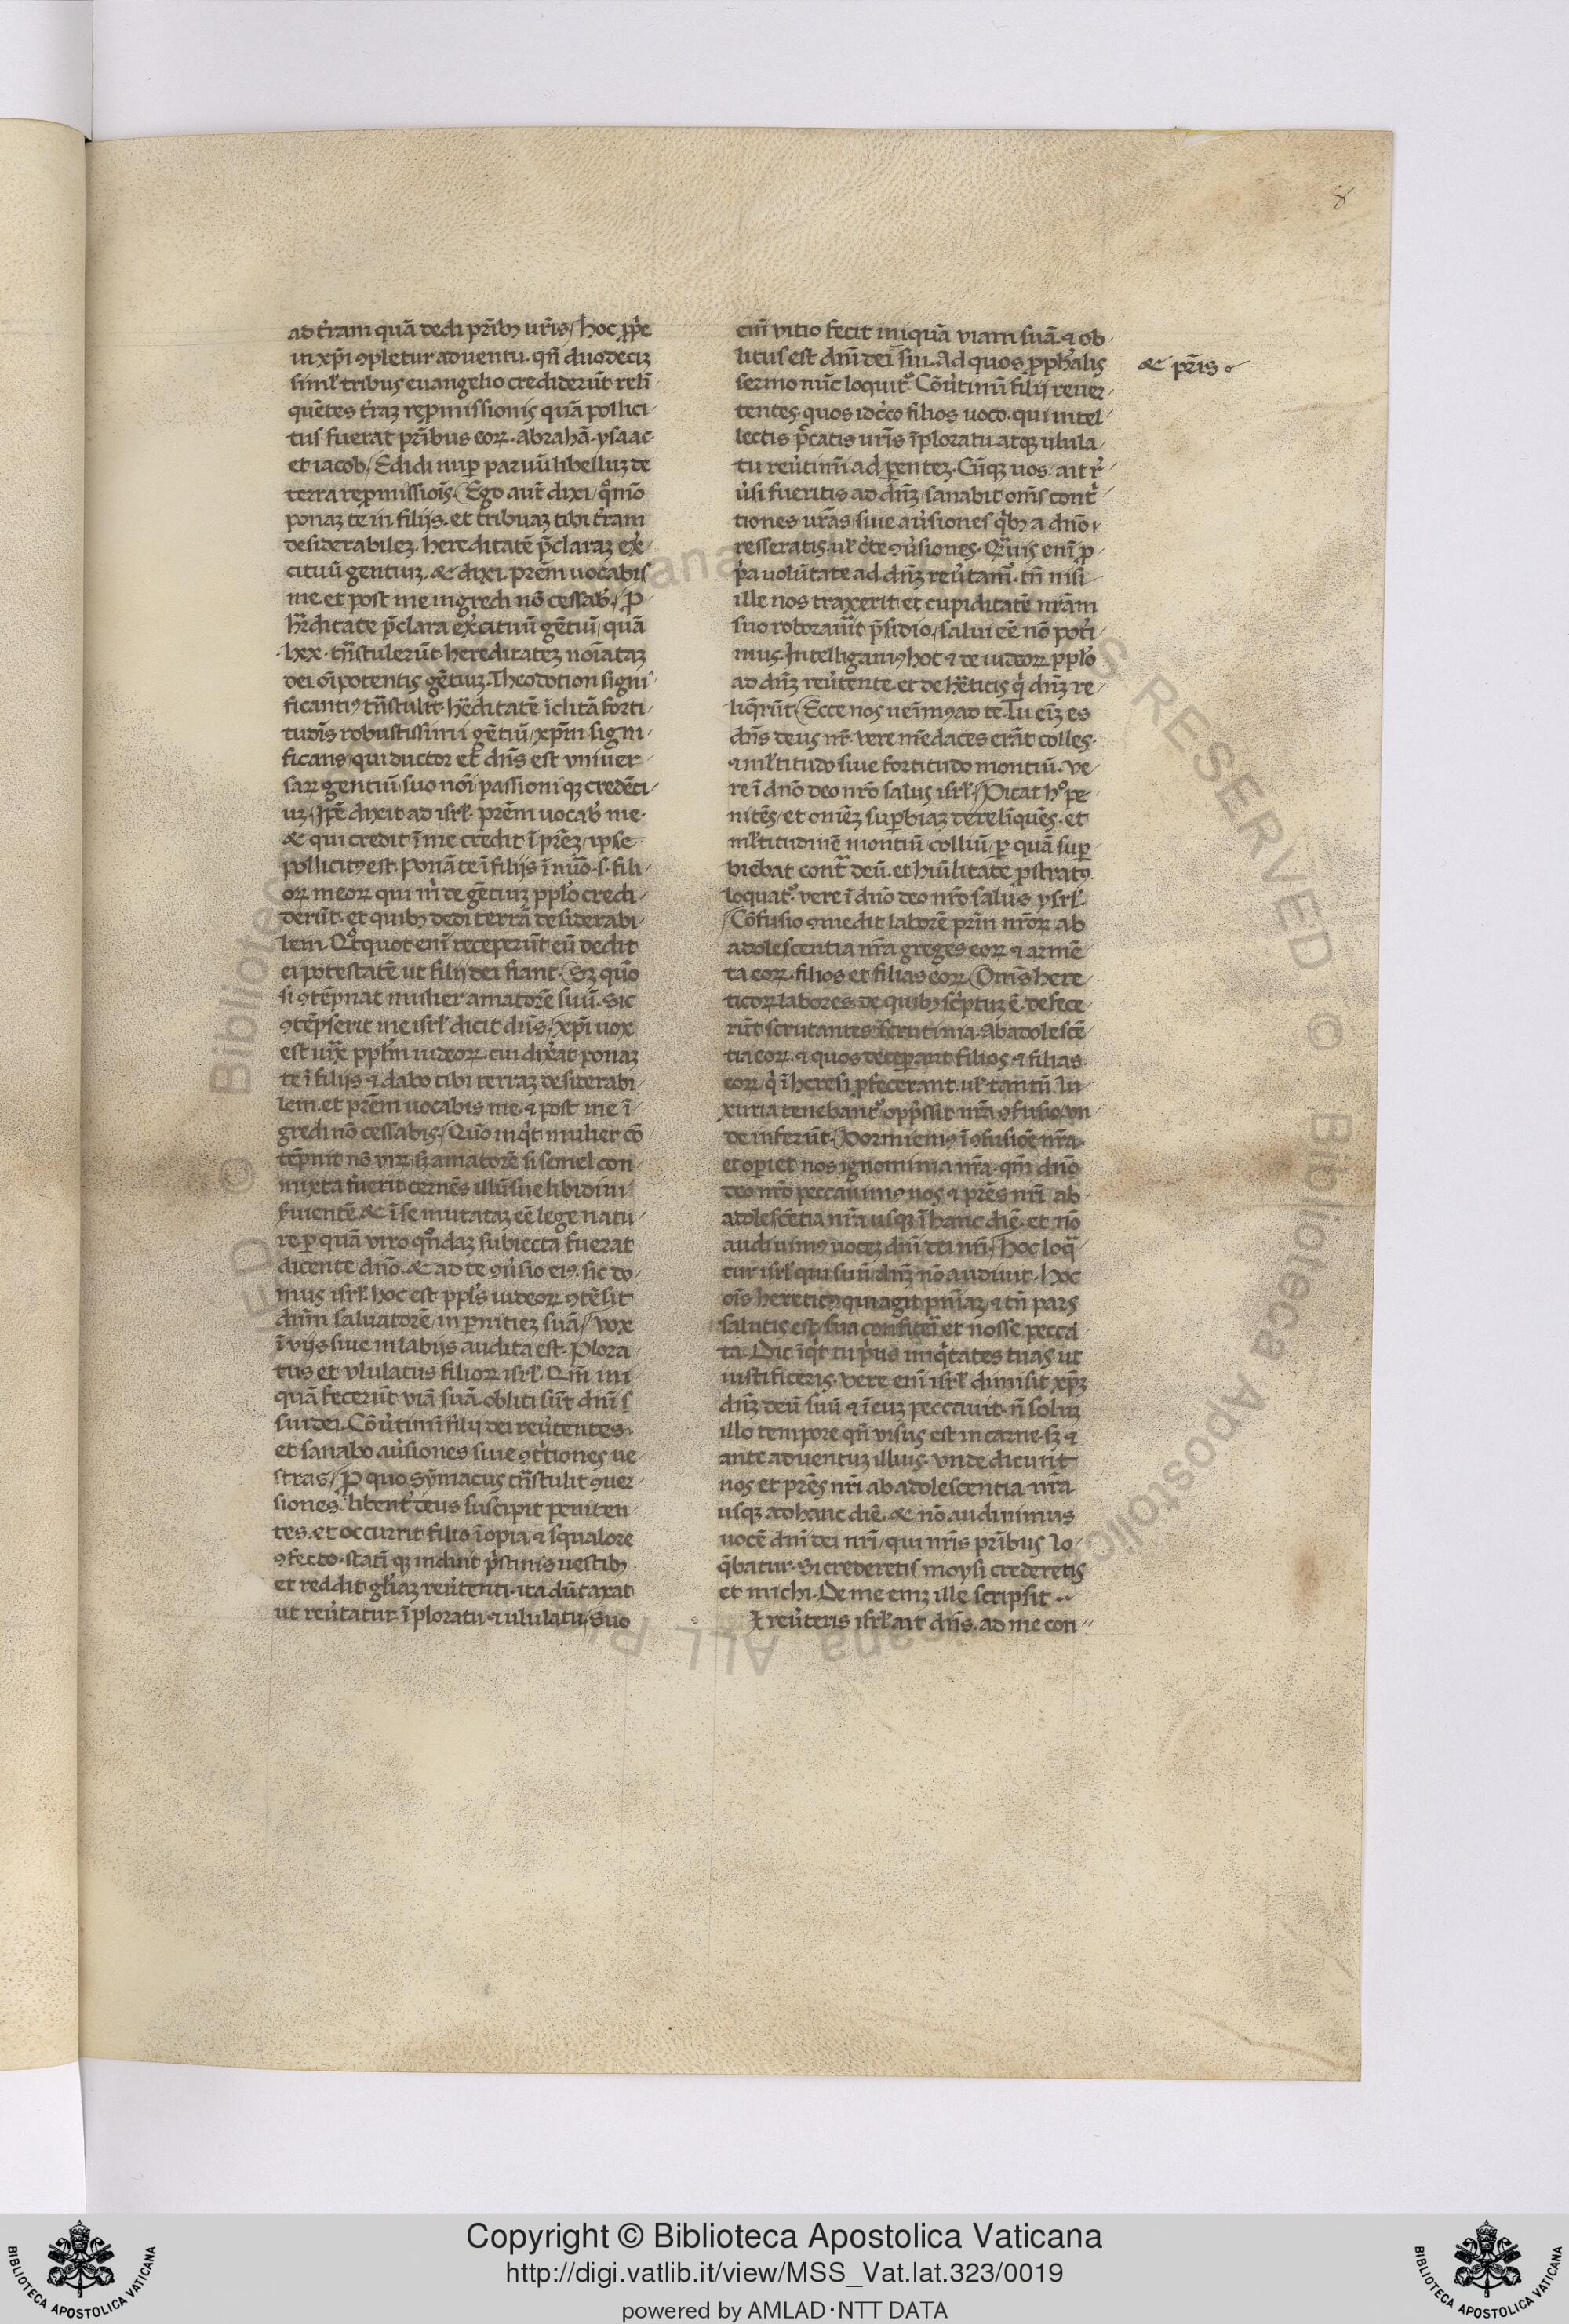 8
ad t̾ram quā dedi pr̄ibꝫ ur̄is / hoc ꝓp̾e
in xp̄i ꝯpletur aduentu. qn̄ duodeciꝫ
simł tribus euangelio credider̄ut reli
quētes t̾raꝫ rep̱missionis quā pollici
tus fuerat pr̄ibus eoꝝ. abrahā. ysaac.
et iacob / Edidi nup̱ paruū libelluꝫ de
terra rep̱missiōis / Ego aut̄ dixi / qͦmō
ponaꝫ te in filijs. et tribuaꝫ tibi t̾ram
desiderabileꝫ. hereditatē p̄claraꝫ ex̾
cituū gentiuꝫ. & dixi. prēm uocabis
me. et post me ingredi nō cessab̾ / P̱
h̾ditate p̄clara ex̾cituū gētiū / quā
.lxx. tn̄stuler̄ut. hereditateꝫ noīataꝫ
dei oīpotentis gētiuꝫ. Theodotion signi
ficantiꝰ tn̄stulit. h̾editatē īclitā forti
tudīs robustissimi gētiū / xp̄m signi
ficans / qui ductor et dn̄s est vniuer
saꝝ gentiū / suo nōi passioni qꝫ credēti
uꝫ / Ip̄e dixit ad isrł. prēm uocab̾ me.
& qui credit ī me credit ī prēꝫ / ipse
pollicitꝰ est. Ponā te ī filijs ī nūo. s. fili
oꝝ meoꝝ qui m̾ de gētiuꝫ ppło credi
der̄ut. et quibꝫ dedi terrā desiderabi
lem. Qͦtquot enī receper̄ut eū dedit
ei potestatē ut filij dei fiant / Sꝫ quō
si ꝯtēpnat mulier amatorē suū. sic
ꝯtēpserit me isrł dicit dn̄s / xp̄i uox
est uix̾ ppłm iudeoꝝ cui dix̾at ponaꝫ
te ī filijs ⁊ dabo tibi terraꝫ desiderabi
lem. et prēm uocabis me. ⁊ post me ī
gredi nō cessabis / Quō inqͥt mulier cō
tēpnit nō viꝝ sꝫ amatorē si semel con
mixta fuerit cernēs illū sue libidini
s̾uientē. & ī se mutataꝫ eē lege natu
re p̱ quā viro qͦndaꝫ subiecta fuerat
dicente dn̄o. & ad te ꝯu̾sio eiꝰ. sic do
mus isrł. hoc est ppłs iudeoꝝ ꝯtēsit
dn̄m saluatorē / in p̱nitieꝫ suā / vox
ī vijs siue in labijs audita est. Plora
tus et vlulatus filioꝝ isrł. Qm̄ ini
quā fecer̄ut viā suā. obliti s̄ut dn̄i s
sui dei. Cōu̾timī filij dei reu̾tentes.
et sanabo au̾siones siue ꝯt̾tiones ue
stras / P̱ quo symacus tn̄stulit ꝯuer
siones. libent̾ deus suscipit peniten
tes. et occurrit filio īopia ⁊ squalore
ꝯfecto. stati qꝫ induit pͥstinis uestibꝫ.
et reddit głiaꝫ reu̾tenti. ita dūtaxat
ut reu̾tatur ī ploratu ⁊ ululatu / Suo
enī vitio fecit iniquā viam suā. ⁊ ob
litus est dn̄i dei sui. Ad quos ꝓph̾alis
sermo nūc loquitᷣ. Cōu̾timī filij reuer
tentes. quos idc̾co filios uoco. qui intel
lectis p̄catis ur̄is īploratu atqꝫ ulula
tu reu̾timī ad p̱enteꝫ. Cūqꝫ uos. ait r̾
u̾si fueritis ad dn̄ꝫ / sanabit om̄s cont̾
tiones ur̄as / siue au̾siones qͥbꝫ a dn̄o
resseratis. uł c̾te ꝯu̾siones. Qᷓuis enī ꝓ
p̾a volūtate ad dn̄ꝫ reu̾tamᷣ. tn̄ nisi
ille nos traxerit et cupiditatē nr̄am
suo roborau̾it p̄sidio / salui eē nō pot̾i
mus. Intelligamꝰ hoc ⁊ de iudeoꝝ ppło
ad dn̄ꝫ reu̾tente. et de h̾eticis qͥ dn̄ꝫ re
liqr̄ut / Ecce nos ueīmꝰ ad te. Tu eīꝫ es
dn̄s deus nr̄. vere mēdaces erāt colles.
⁊ młtitudo siue fortitudo montiū. ve
re ī dn̄o deo nr̄o salus isrł / Dicat hͦ pe
nitēs / et omēꝫ sup̱biaꝫ derelīquēs. et
młtitudinē montiū colliū / p̱ quā sup̱
biebat contᷓ deū. et hūilitate ꝓstratꝰ.
loquatᷣ. vere ī dn̄o deo nr̄o salus ysrł.
/ Cōfusio ꝯmedit laborē prīm nr̄oꝝ ab
adolescentia nr̄a greges eoꝝ ⁊ armē
ta eoꝝ. filios et filias eoꝝ / Om̄s here
ticoꝝ labores. de quibꝫ sc̾ptuꝫ ē. defece
r̄ut scrutantes scrutinia. Ab adolescē
tia eoꝝ. ⁊ quos decep̱ant filios ⁊ filias
eoꝝ / qͥ ī heresi ꝓfecerant. uł tantū lu
xuria tenebantᷣ. opp̄ssit nr̄a ꝯfusio / vn
de infer̄ut / Dormiemꝰ ī ꝯfusiōe nr̄a.
et op̱iet nos ignominia nr̄a. qm̄ dn̄o
deo nr̄o peccauimꝰ nos ⁊ prēs nr̄i / ab
adolescētia nr̄a usqꝫ ī hanc diē. et nō
audiuimꝰ uoceꝫ dn̄i dei nr̄i / Hoc loqᷓ
tur isrł qui suū dn̄ꝫ nō audiuit. hoc
oīs hereticꝰ qui agit pn̄iaꝫ. ⁊ tn̄ pars
salutis est / sua confit̾i et nosse pecca
ta. Dic īqͥt tu p̾us iniqͥtates tuas ut
iustificeris. vere enī isrł dimisit xp̄ꝫ
dn̄ꝫ deū suū ⁊ ī euꝫ peccauit. n̄ soluꝫ
illo tempore qn̄ visus est in carne. sꝫ ⁊
ante aduentuꝫ illius. vnde dicunt
nos et prēs nr̄i ab adolescentia nr̄a
usqꝫ ad hanc diē. & nō audiuimus
uocē dn̄i dei nr̄i / qui nr̄is pr̄ibus lo
q̄batur. Si crederetis moysi crederetis
et michi. De me enīꝫ ille scripsit
s I reu̾teris isrł ait dn̄s. ad me con
& pr̄is
Copyright © Biblioteca Apostolica Vaticana
http://digi.vatlib.it/view/MSS_Vat.lat.323/0019
powered by AMLAD·NTT DATA
BIBLIOTECA APOSTOLICA VATICANA
BIBLIOTECA APOSTOLICA VATICANA